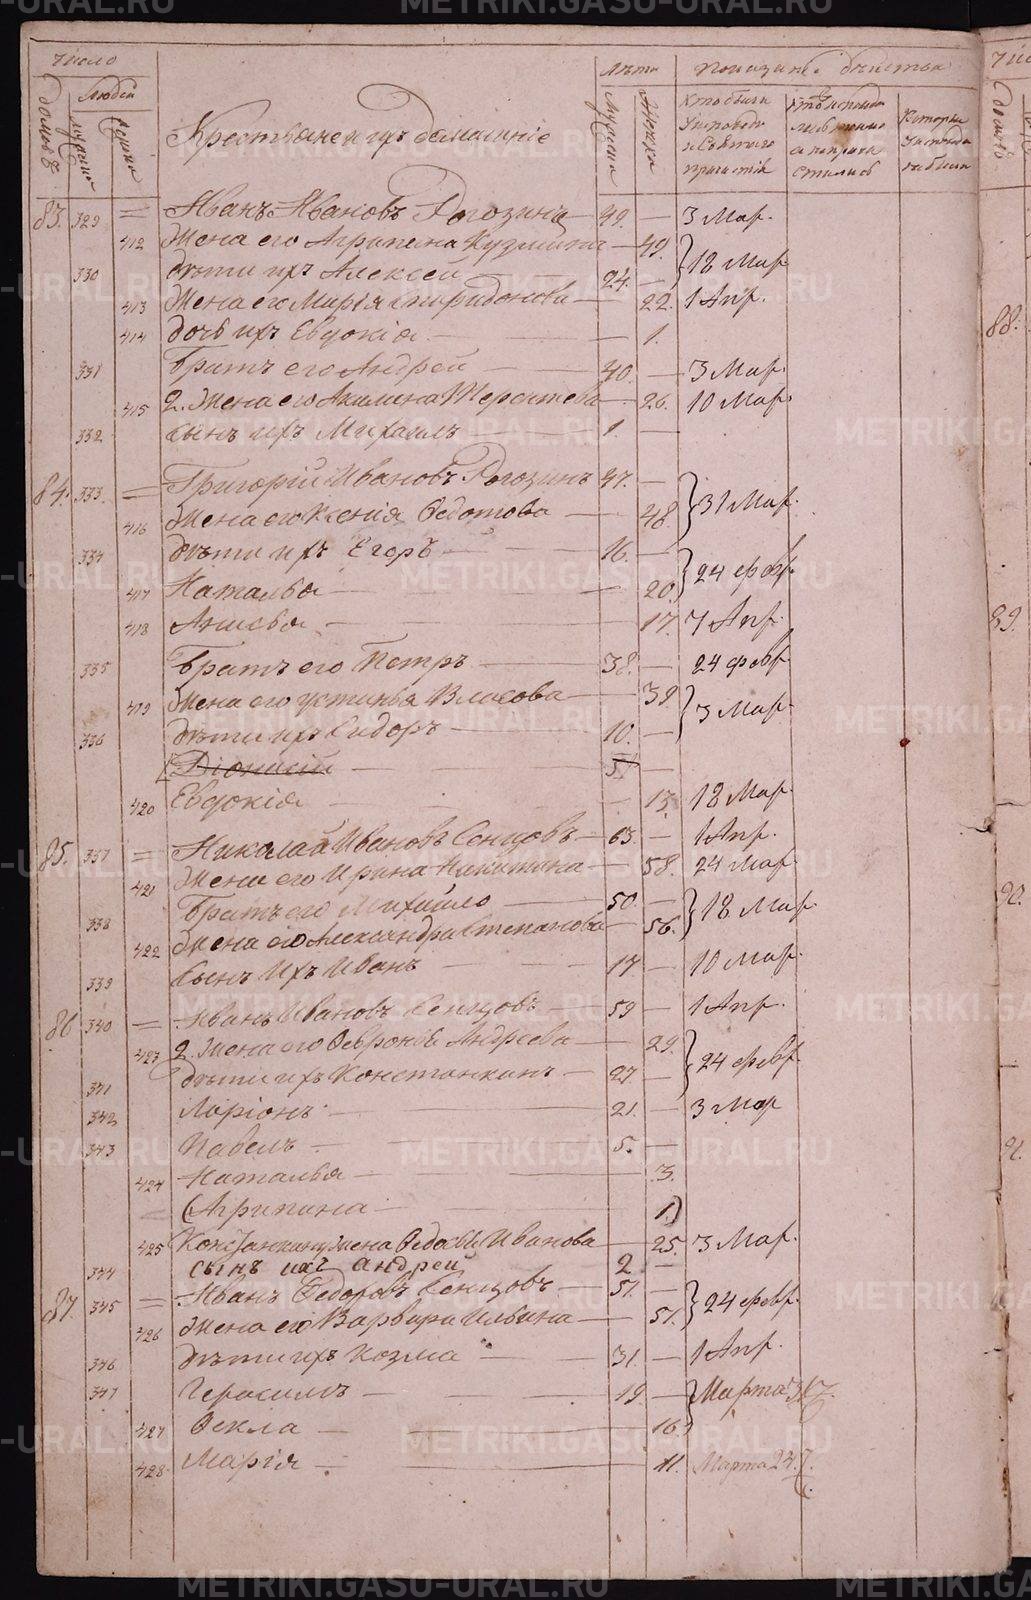 Число
Лѣта
Показаніе дѣйства
домовъ
Людей
мужска
женска
Крестьяне и ихъ домашніе
Мужска
Женска
Кто были у исповѣди и Святаго причастія
83. 329 = Иванъ Ивановъ Рогозинъ 49. — 3 Мар.
412 Жена его Агрипена Кузмина — 49. } 18 Мар
330 дѣти ихъ Алексей 24. —
413 Жена его Марія Спиридонова — 22. 1 Апр.
414 дочь ихъ Евдокія — 1.
331 Братъ его Андрей 40. — 3 Мар.
415 2. Жена его Акилина Терентева — 26. 10 Мар.
332 сынъ ихъ Михаилъ 1. —
84. 333. = Григорій Ивановъ Рогозинъ 47. — } 31 Мар.
416 Жена его Ксенія Федотова — 48.
334 дѣти ихъ Егоръ 16. — } 24 февр.
417 Наталья — 20.
418 Анисья — 17. 7 Апр.
335 Братъ его Петръ 38. — 24 февр
419 Жена его Устинья Власова — 39. } 3 Мар.
336 дѣти ихъ Сидоръ 10. —
Діонисій 5 —
420 Евдокія — 13. 18 Мар.
85. 337 = Николай Ивановъ Сенцовъ 63. — 1 Апр.
421 Жена его Ирина Никитина — 58. 24 Мар.
338 Братъ его Михайло 50. — } 18 Мар.
422 Жена его Александра Степанова — 56.
339 сынъ ихъ Иванъ 17 — 10 Мар.
86 340 = Иванъ Ивановъ Сенцовъ 59 — 1 Апр.
423 2. Жена его Февронія Андреева — 29. } 24 февр
341 дѣти ихъ Констанкинъ 27. —
342 Ларіонъ 21. — 3 Мар
343 Павелъ 5. —
424 Наталья — 3.
(Агрипина — 1.)
425 Констанкину жена Федосья Иванова — 25. 3 Мар.
344 сынъ ихъ андрей 2 —
87. 345 = Иванъ Федоровъ Сенцовъ 51. — } 24 февр.
426 Жена его Варвара Ильина — 51.
346 дѣти ихъ Козма 31. — 1 Апр.
347 Герасимъ 19. — } Марта 31
427 Фекла — 16.
428 Марія — 11. Марта 24.
88.
89.
90.
METRIKI.GASO-URAL.RU